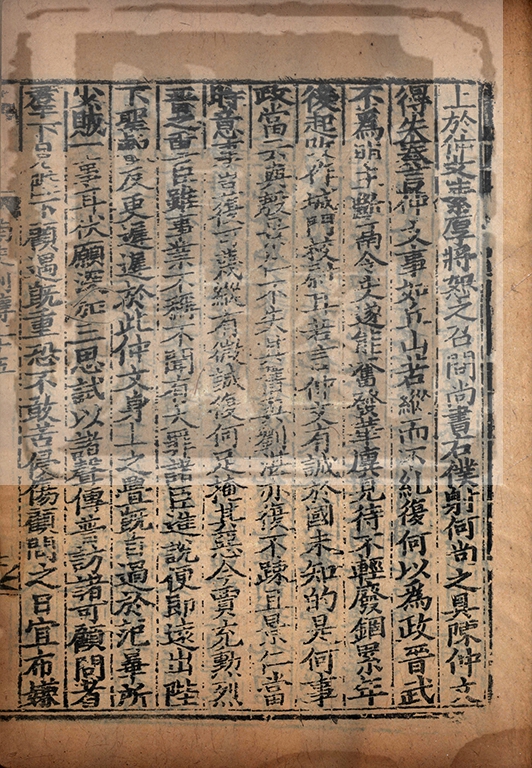 上於仲文素厚將恕之召問尚書右僕射何尚之具陳仲文
得失奏言仲文事如丘山若縱而不糺復何以為政晉武
不為明主斷鬲令事遂能奮發華廙見待不輕廢錮累年
後起改作城門校尉耳若言仲文有誠於國未知的是何事
政當云與殷景仁不失其舊與劉湛亦復不疎且景仁當
時意事豈復可蔑縱有微誠復何足掩其惡今賈充勳烈
晉之重臣雖事業不稱不聞有大罪諸臣進說便即遠出陛
下聖叡反更遲遲於此仲文身上之舋既自過於范曄所
少賊一事耳伏願深加三思試以諸聲傳普訪諸可顧問者
羣下見陛下顧遇既重恐不敢苦侵傷顧問之日宜布嫌